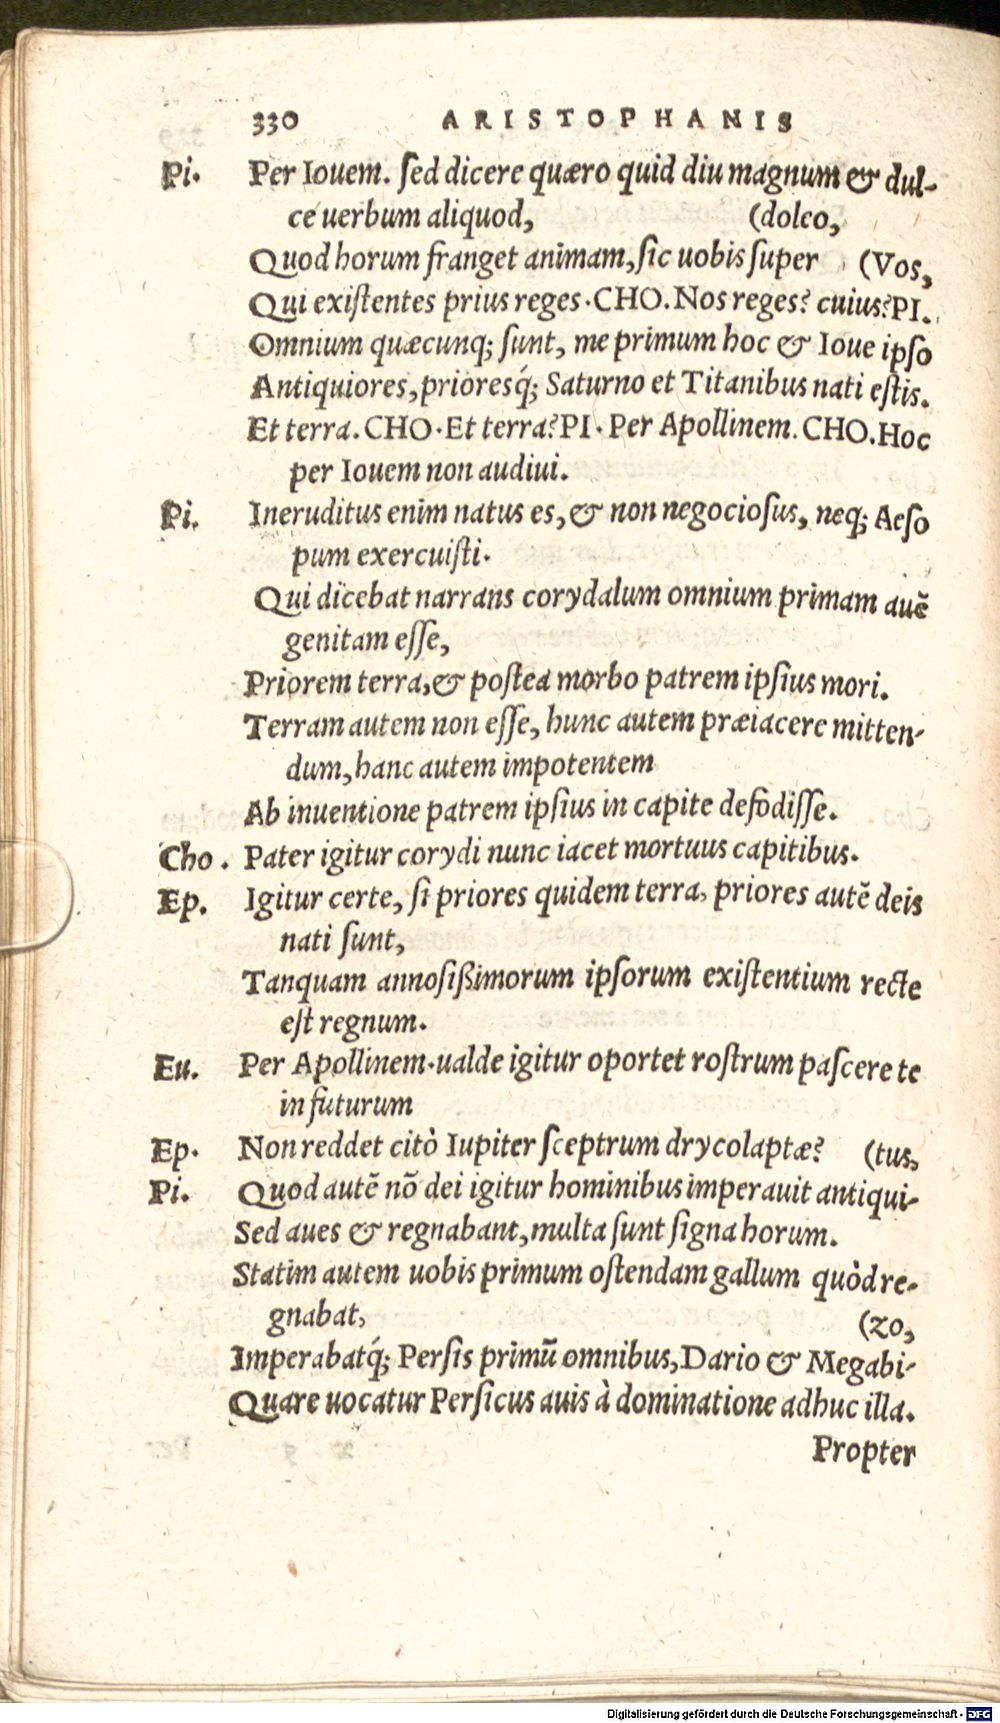 330 ARISTOPHANIS
Pi. Per Iouem. ſed dicere quæro quid diu magnum & dul-
ce uerbum aliquod, (doleo,
Quod horum franget animam, ſic uobis ſuper (Vos,
Qui exiſtentes prius reges. CHO. Nos reges? cuius? PI.
Omnium quæcunq; ſunt, me primum hoc & Ioue ipſo
Antiquiores, prioresq́; Saturno et Titanibus nati eſtis.
Et terra. CHO. Et terra? PI. Per Apollinem. CHO. Hoc
per Iouem non audiui.
Pi. Ineruditus enim natus es, & non negocioſus, neq; Aeſo
pum exercuiſti.
Qui dicebat narrans corydalum omnium primam auē
genitam eſſe,
Priorem terra, & poſtea morbo patrem ipſius mori.
Terram autem non eſſe, hunc autem præiacere mitten-
dum, hanc autem impotentem
Ab inuentione patrem ipſius in capite defodiſſe.
Cho. Pater igitur corydi nunc iacet mortuus capitibus.
Ep. Igitur certe, ſi priores quidem terra, priores autē deis
nati ſunt,
Tanquam annoſißimorum ipſorum exiſtentium recte
eſt regnum.
Eu. Per Apollinem. ualde igitur oportet roſtrum paſcere te
in futurum
Ep. Non reddet citò Iupiter ſceptrum drycolaptæ? (tus,
Pi. Quod autē nō dei igitur hominibus imperauit antiqui-
Sed aues & regnabant, multa ſunt ſigna horum.
Statim autem uobis primum oſtendam gallum quòd re-
gnabat, (zo,
Imperabatq́; Perſis primū omnibus, Dario & Megabi-
Quare uocatur Perſicus auis à dominatione adhuc illa.
Propter
Digitalisierung gefördert durch die Deutsche Forschungsgemeinschaft - DFG